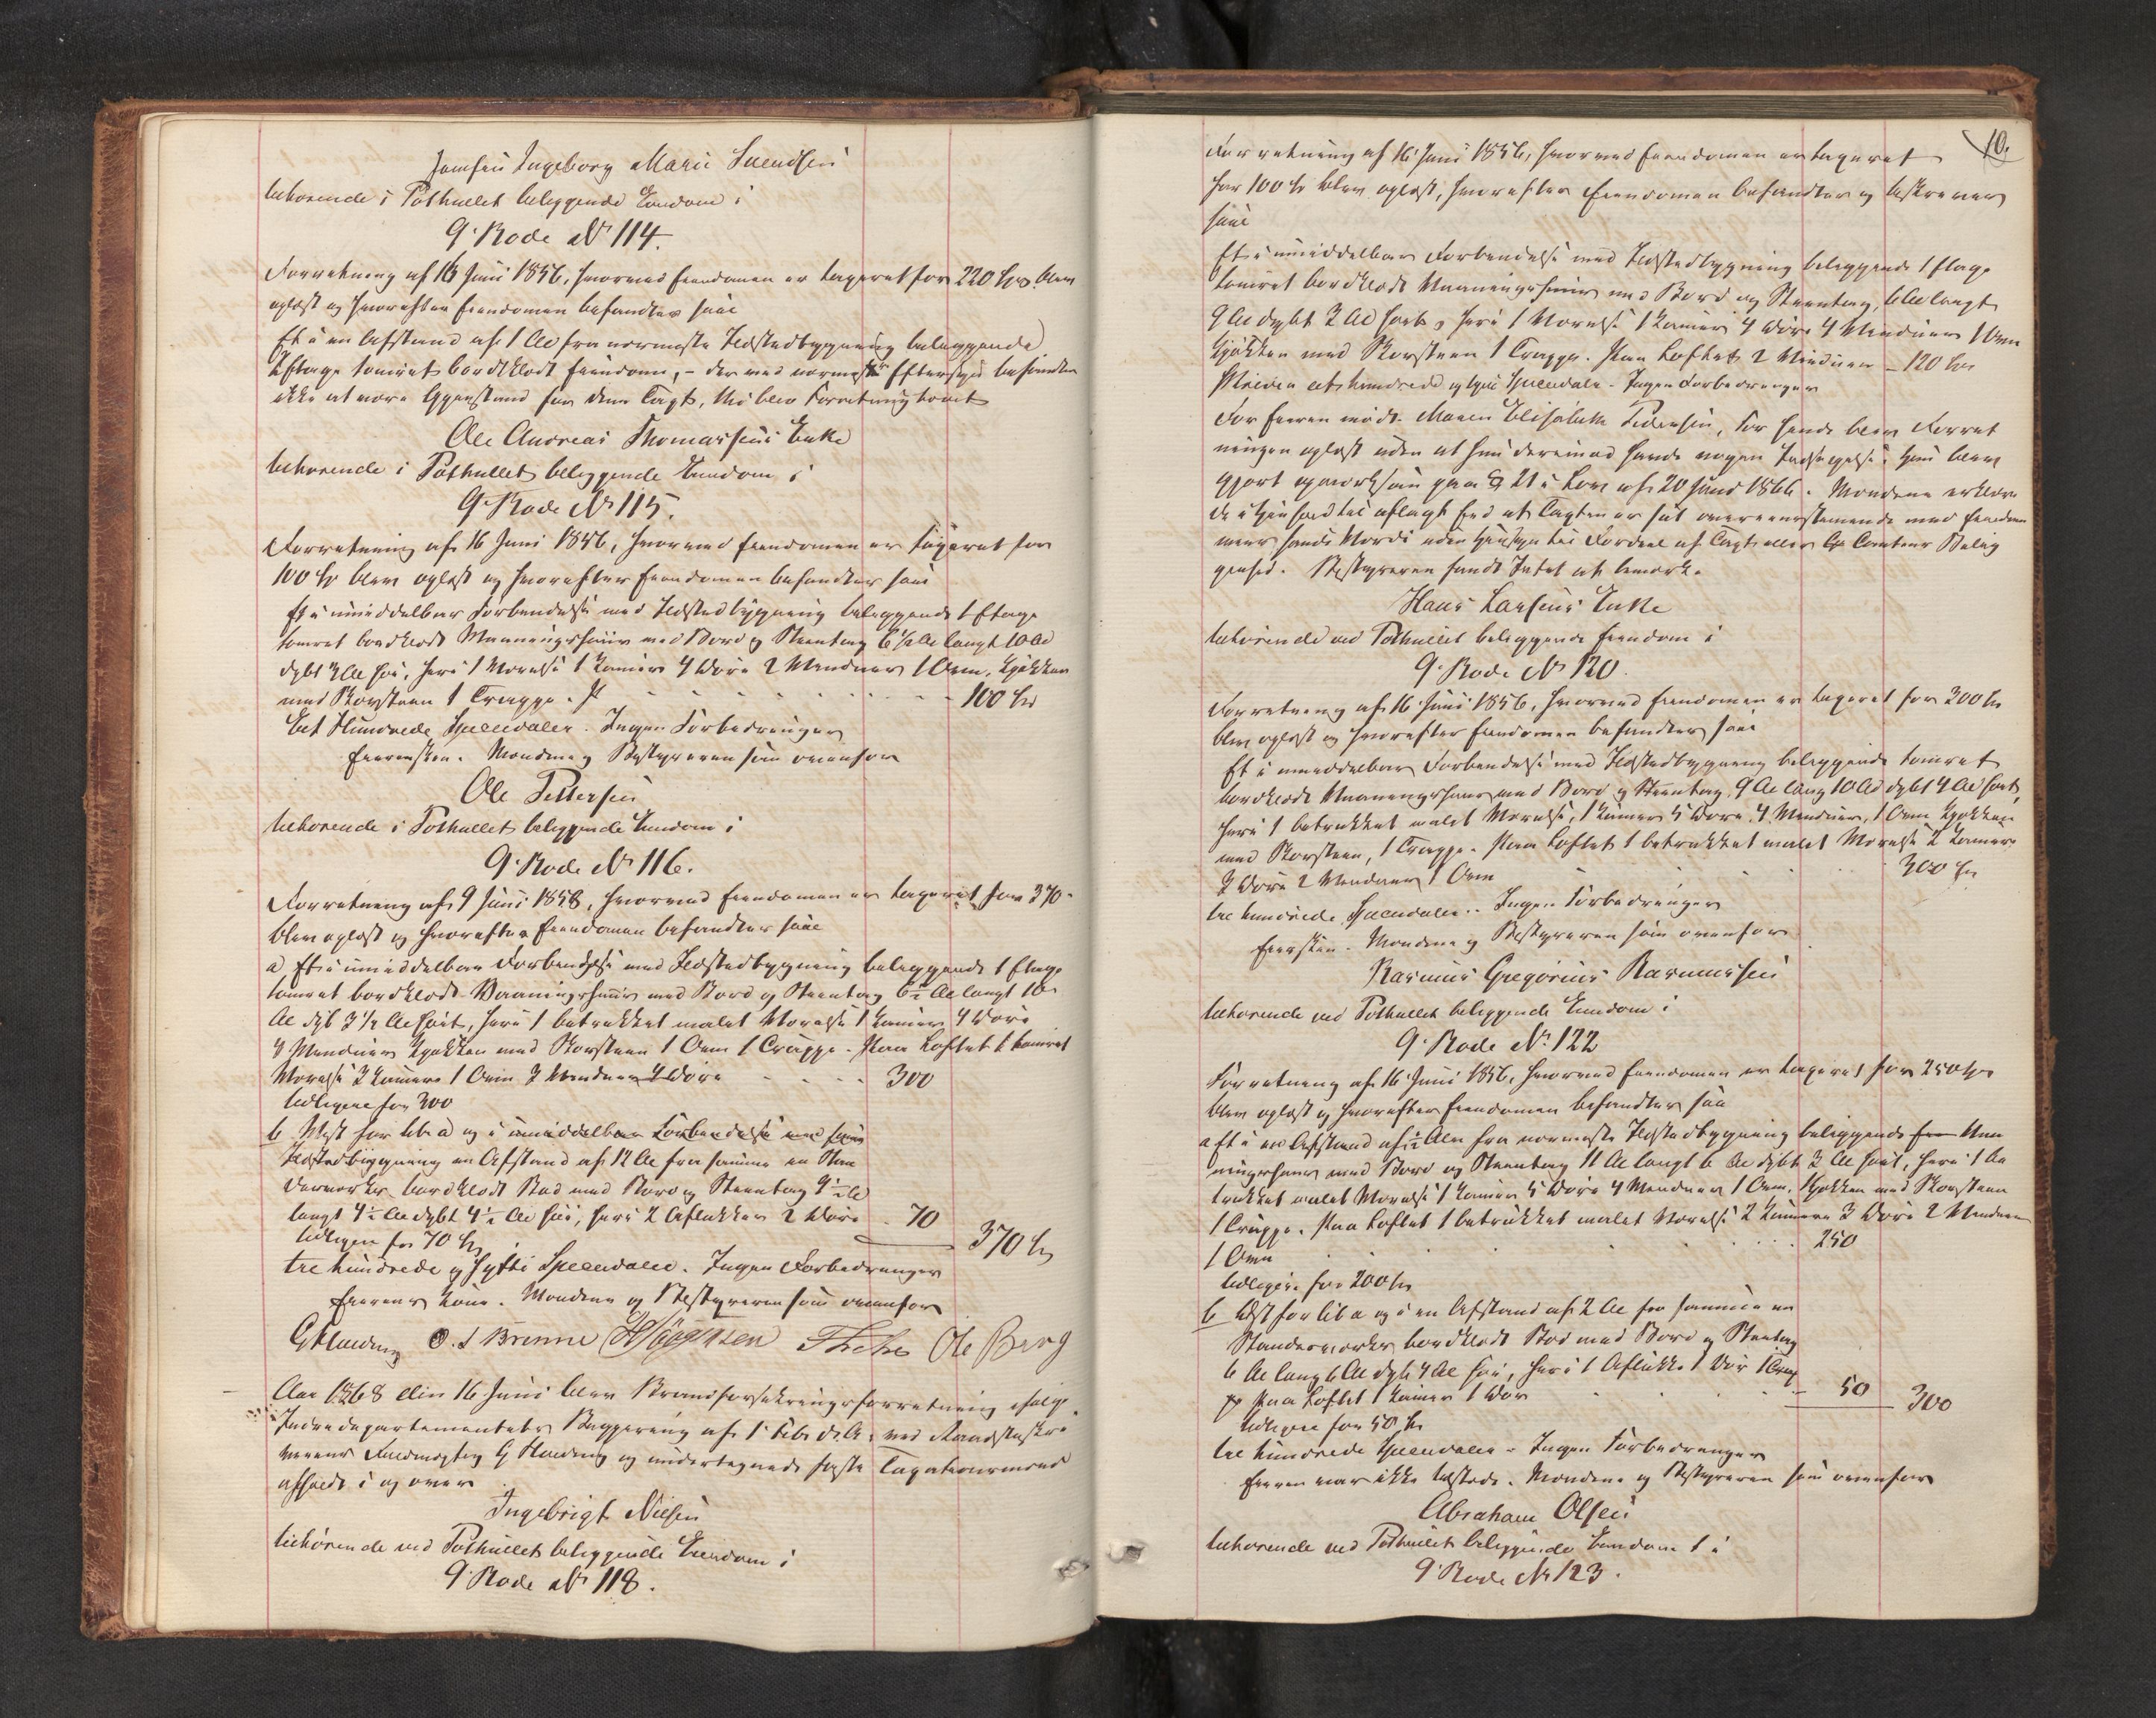 Jomfru Ingeborg Marie Svendsen
tilhørende i Pothullet beliggende Eiendom i
9 Rode No 114.
Forretning af 16 Juni 1856, hvorved Eiendomen er taxeret for 220 Spd. blev
oplæst og hvorefter Eiendomen befandtes saa
Et i en Afstand af 1 Al fra nærmeste Ildstedbygning beliggende
Etage tømret bordklædt Eiendom, - der ved nærmere Eftersyn befandtes
ikke at være Gjenstand for den Taxt, thi blev Forretning hævet
Ole Andreas Thomassens Enke
tilhørende i Pothullet beliggende Eiendom i
9 Rode No 115.
Forretning af 16 Juni 1856, hvorved Eiendomen er taxeret for
100 Sp blev oplæst og hvorefter Eiendomen befandtes saa
Et i umiddelbar Forbindelse med Ildstedbygning beliggende 1 Etage
tømret bordklædt Vaaningshuus med Bord og Steentag 6 1/2 Al langt 10 Al
dybt 3 Al høi, heri 1 Værelse 1 Kamer 4 Døre 2 Vinduer 1 Ovn, Kjøkken
med Skorsteen 1 Trappe. - - - - - 100 Spd
Eet Hundrede Speciedaler. Ingen Forbedringer
Eierinden. Mændene og Bestyreren som ovenfor
Ole Pettersen
tilhørende i Pothullet beliggende Eiendom i
9 Rode No 116.
Forretning af 9 Juni 1858, hvorved Eiendomen er taxeret for 370
blev oplæst og hvorefter Eiendomen befandtes saa
a Et i umiddelbar Forbindelse med Ildstedbygning beliggende 1 Etage
tømret bordklædt Vaaningshuus med Bord og Steentag 6 1/2 Al langt 10
Al dyb 3 1/2 Al høit, heri 1 betrukket malet Værelse 1 Kamer 4 Døre
4 Vinduer Kjøkken med Skorsteen 1 Ovn 1 Trappe. Paa Loftet 1 tømret
Værelse 2 Kamere 1 Ovn 3 Vinduer 4 Døre - - - 300
tidligere for 300
b Vest for lit a og i umiddelbar Forbindelse med
Ildstedbygning en Afstand af 12 Al fra samme en Stan
derværks bordklædt Bod med Bord og Steentag 9 1/2 Al
langt 4 1/2 Al dybt 4 1/2 Al høi, heri 2 Aflukker 2 Døre - 70
tidligere for 70 Sp 370 Sp
tre hundrede og sytti Speciedaler. Ingen Forbedringer
Eierens Kone. Mændene og Bestyreren som ovenfor
O. J Brenne Ole Berg
Aar 1868 den 16 Juni blev Brandforsikringsforretning ifølge
Indredepartementets Bevilgning af 1 Febr d. A. ved Raadstueskri
verens Fuldmægtig og undertegnede faste Taxationsmænd
afholdt i og over
Ingebrigt Nielsen
tilhørende ved Pothullet beliggende Eiendom i
9 Rode No 118.
10.
Forretning af 16 Juni 1856, hvorved Eiendomen er taxeret
for 100 Sp blev oplæst, hvorefter Eiendomen befandtes og beskreves
saa
Et i umiddelbar Forbindelse med Ildstedbygning beliggende 1 Etage
tømret bordklædt Vaaningshuus med Bord og Steentag, 6 Al langt
9 Al dybt 3 Al høit, heri 1 Værelse 1 Kamer 4 Døre 4 Vinduer 1 Ovn
Kjøkken med Skorsteen 1 Trappe. Paa Loftet 2 Vinduer - 120 Spd
et hundrede og tyve Speciedaler. Ingen Forbedringer
For Eieren mødte Maren Elisabeth Pedersen, for hende blev Forret
ningen oplæst uden at hun derimod havde nogen Indsigelse. Hun blev
gjort opmærksom paa § 21 i Lov af 20 Juni 1866. Mændene erklære
de i Henhold til aflagt Eed at Taxten er sat overeensstemmende med Eiendom
mens sande Værdi uden Hensyn til Fordeel af Taxt eller Contoir Belig
genhed. Bestyreren fandt Intet at bemærke
Hans Larsens Enke
tilhørende ved Pothullet beliggende Eiendom i
9 Rode No 120.
Forretning af 16 Juni 1856, hvorved Eiendomen er taxeret for 300 Sp
blev oplæst og hvorefter Eiendomen befandtes saa
Et i umiddelbar Forbindelse med Ildstedbygning beliggende tømret
bordklædt Vaaningshuus med Bord og Steentag, 9 Al lang 10 Al dybt 4 Al høit,
heri 1 betrukket malet Værelse, 1 Kamer 5 Døre, 4 Vinduer, 1 Ovn Kjøkken
med Skorsteen, 1 Trappe. Paa Loftet 1 betrukket malet Værelse 2 Kamere
3 Døre 2 Vinduer 1 Ovn 300 Sp
tre hundrede Speciedaler. Ingen Forbedringer
Eiersken. Mændene og Bestyreren som ovenfor
Rasmus Gregorius Rasmussen
tilhørende ved Pothullet beliggende Eiendom i
9 Rode No 122
Forretning af 16 Juni 1856, hvorved Eiendomen er taxeret for 250 Sp
blev oplæst og hvorefter Eiendomen befandtes saa
a Et i en Afstand af 1/2 Alen fra nærmeste Ildstedbygning beliggende Vaa
ningshuus med Bord og Steentag 11 Al langt 6 Al dybt 3 Al høit, heri 1 be
trukket malet Værelse 1 Kamer 5 Døre 4 Vinduer 1 Ovn, Kjøkken med Skorsteen
1 Trappe. Paa Loftet 1 betrukket malet Værelse 2 Kamere 3 Døre 2 Vinduer
1 Ovn 250
tidligere for 200 Sp
b Øst for lit a og i en Afstand af 2 Al fra samme en
Standerværks bordklædt Bod med Bord og Steentag
6 Al lang 6 Al dyb 4 Al høi, heri 1 Aflukke 1 Dør 1 Trap
pe Paa Loftet 1 Kamer 1 Dør 50 300
tidligere for 50 Sp
tre hundrede Speciedaler - Ingen Forbedringer
Eieren var ikke tilstede. Mændene og Bestyreren som ovenfor
Abraham Olsen
tilhørende ved Pothullet beliggende Eiendom i
9 Rode No 123.